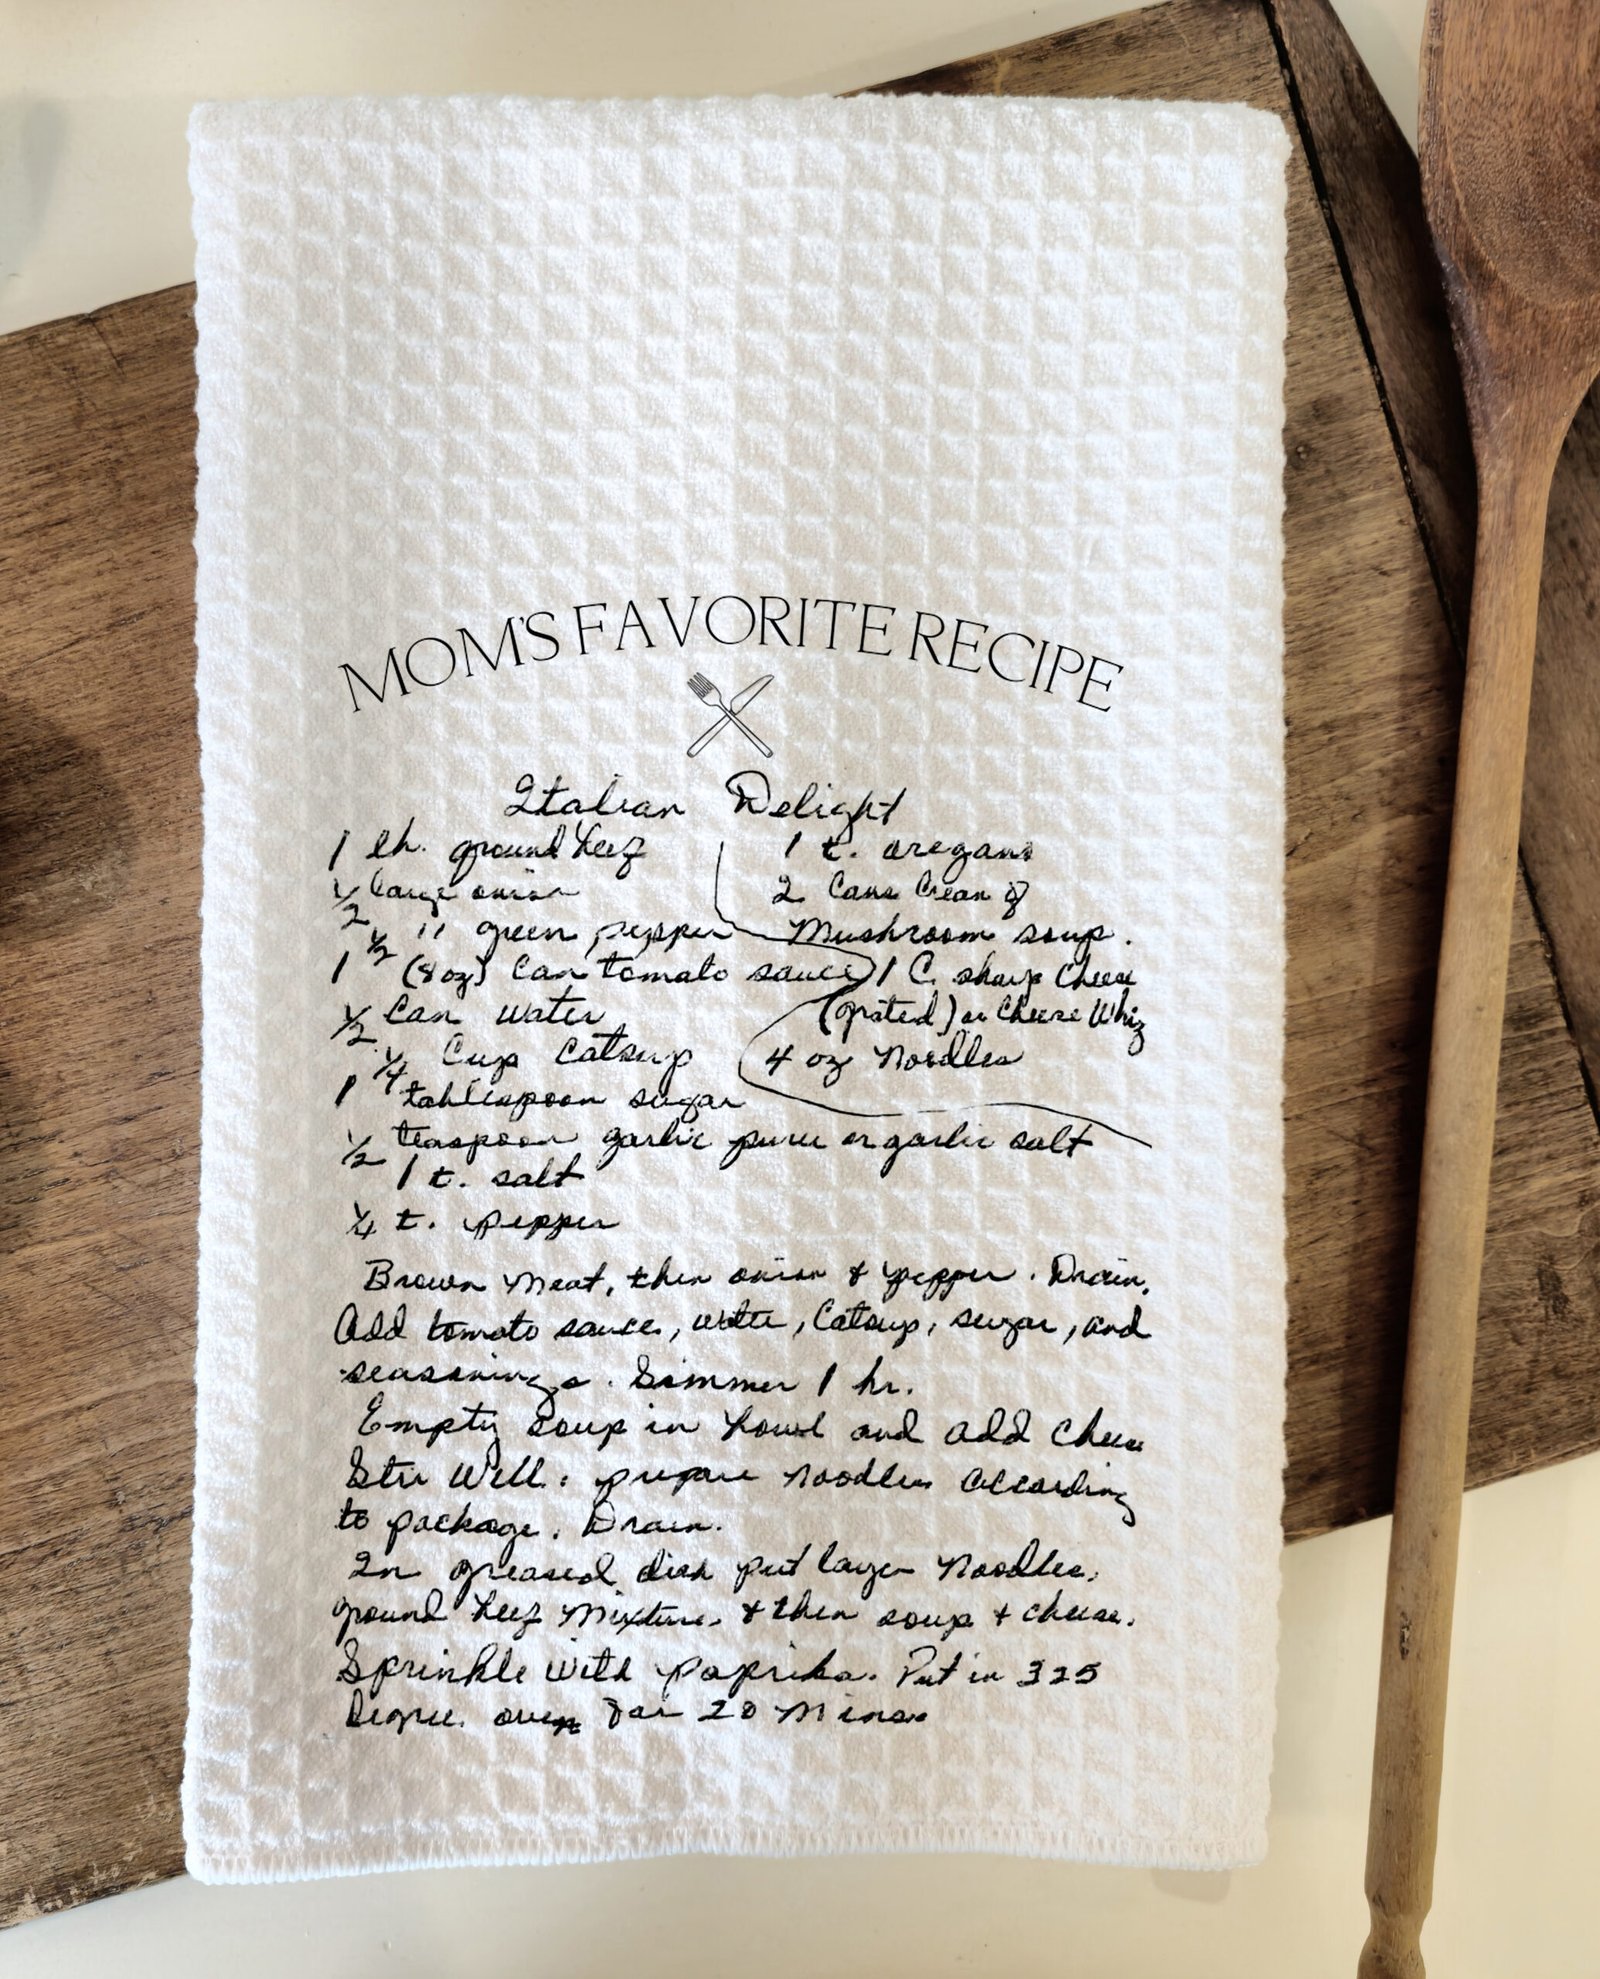 MOM'S FAVORITE RECIPE
Italian Delight
1 lb. ground beef
1/2 large onion
1/2 " green pepper
1 (8 oz) Can tomato sauce
1/2 Can water
1/4 Cup Catsup
1 tablespoon sugar
1/2 teaspoon garlic puree or garlic salt
1 t. salt
1/4 t. pepper
1 t. oregano
2 Cans Cream of
Mushroom soup.
1 C. sharp Cheese
(grated) or Cheese Whiz
4 oz Noodles
Brown Meat, then onion & pepper. Drain.
Add tomato sauce, water, Catsup, sugar, and
seasonings. Simmer 1 hr.
Empty soup in bowl and add cheese
Stir Well. prepare Noodles according
to package. Drain.
In greased dish put layer Noodles,
ground beef Mixture, & then soup & cheese.
Sprinkle With paprika. Put in 325
Degree oven for 20 Mins.